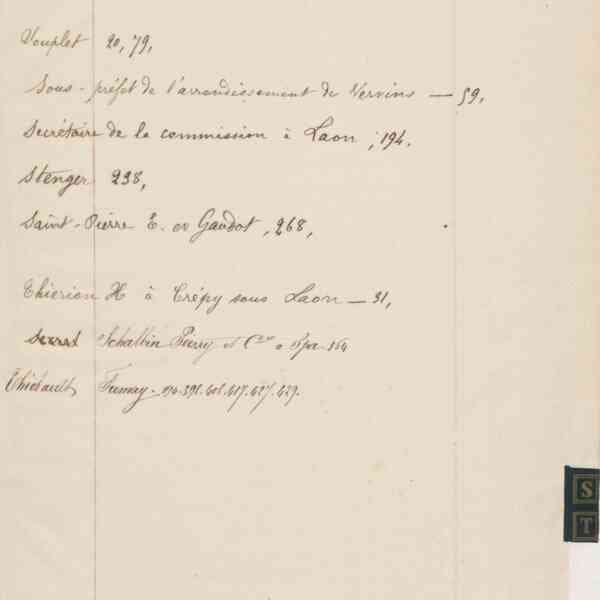 Souplet 20, 79,
Sous-préfet de l'arrondissement de Vervins — 59,
Secrétaire de la commission à Laon, 194.
Stenger 238,
Saint-Pierre E. et Gaudot, 268,
Thierion H à Crépy sous Laon — 31,
Schaltin Pierry et Cie à Spa. 154
Thiébault Fumay.
S
T